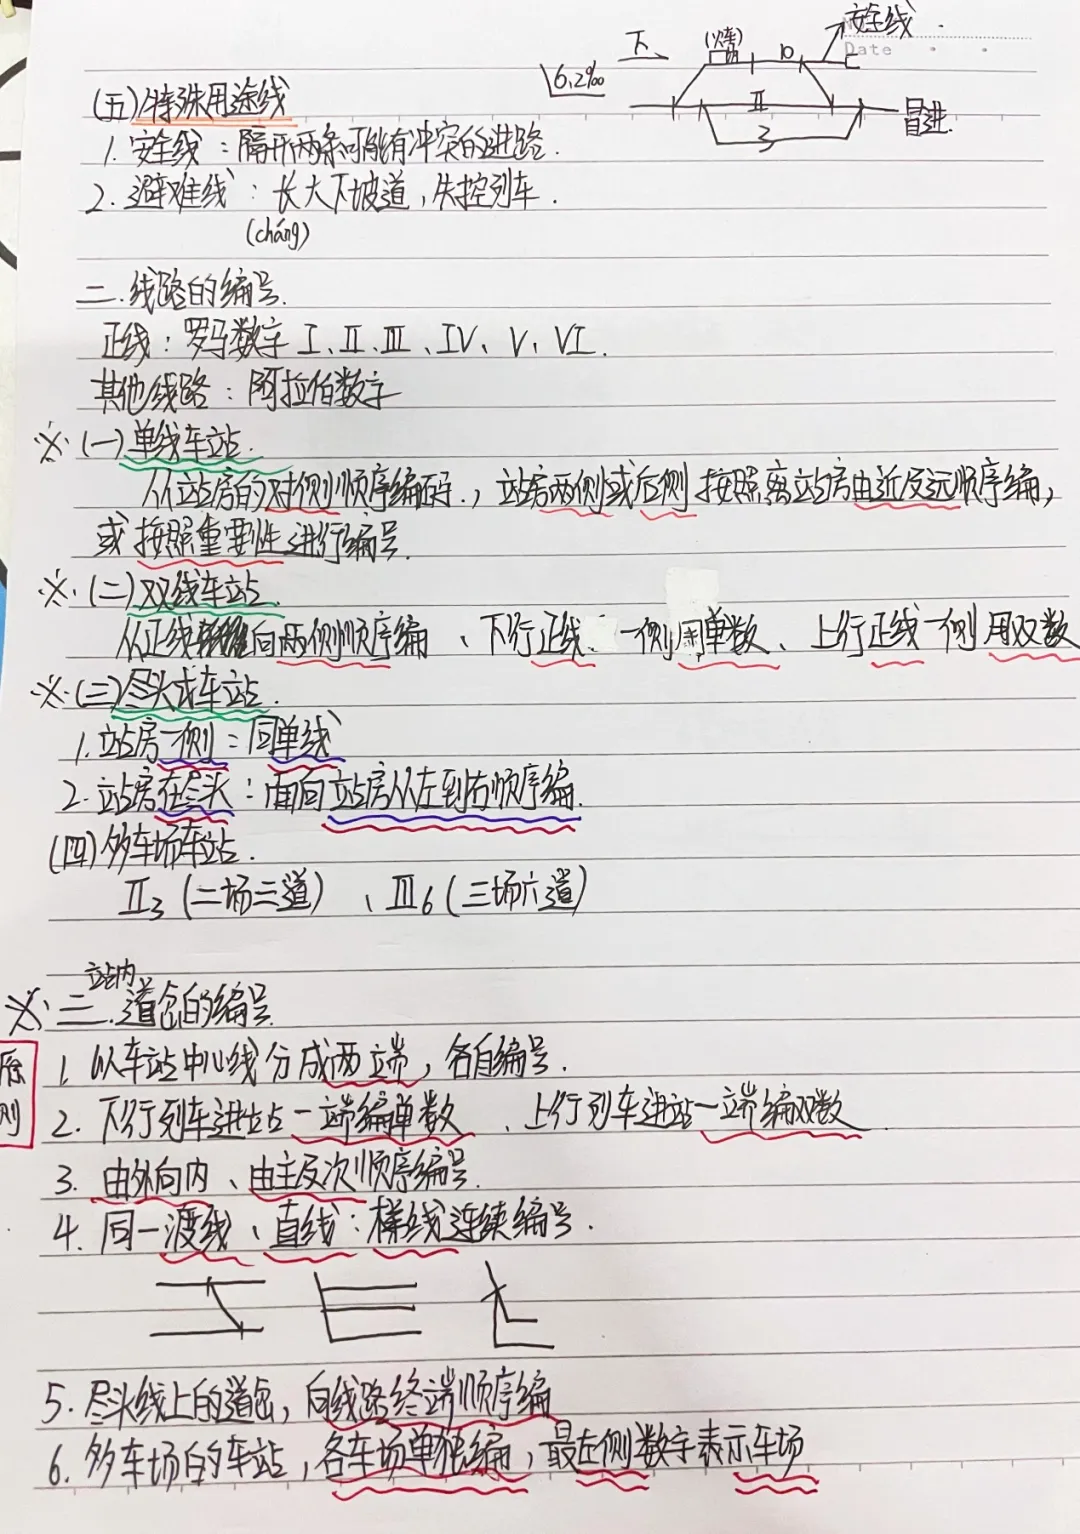 安全线
Date
下
(火车)
6.2‰
10
II
3
冒进.
(五)特殊用途线
1. 安全线：隔开两条可能有冲突的进路.
2. 避难线：长大下坡道，失控列车.
(cháng)
二.线路的编号.
正线：罗马数字 I、II、III、IV、V、VI.
其他线路：阿拉伯数字
※(一)单线车站.
从站房的对侧顺序编码.，站房两侧或后侧按照离站房由近及远顺序编，
或按照重要性进行编号.
※(二)双线车站.
从正线向两侧顺序编、下行正线一侧用单数、上行正线一侧用双数
※(三)尽头式车站.
1.站房一侧：同单线
2.站房在尽头：面向站房从左到右顺序编.
(四)多车场车站.
II3(二场三道)、III6(三场六道)
站内
※三.道岔的编号.
原则
1. 以车站中心线分成两端，各自编号.
2. 下行列车进站一端编单数、上行列车进站一端编双数.
3. 由外向内、由主及次顺序编号.
4. 同一渡线、直线：梯线连续编号.
5. 尽头线上的道岔，向线路终端顺序编
6. 多车场的车站，各车场单独编，最左侧数字表示车场